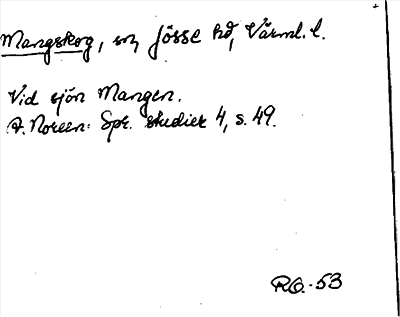 Mangskog, sn, Jösse hd, Värml. l.
Vid sjön Mangen.
A. Noreen: Spr. studier 4, s. 49.
R.O. -53